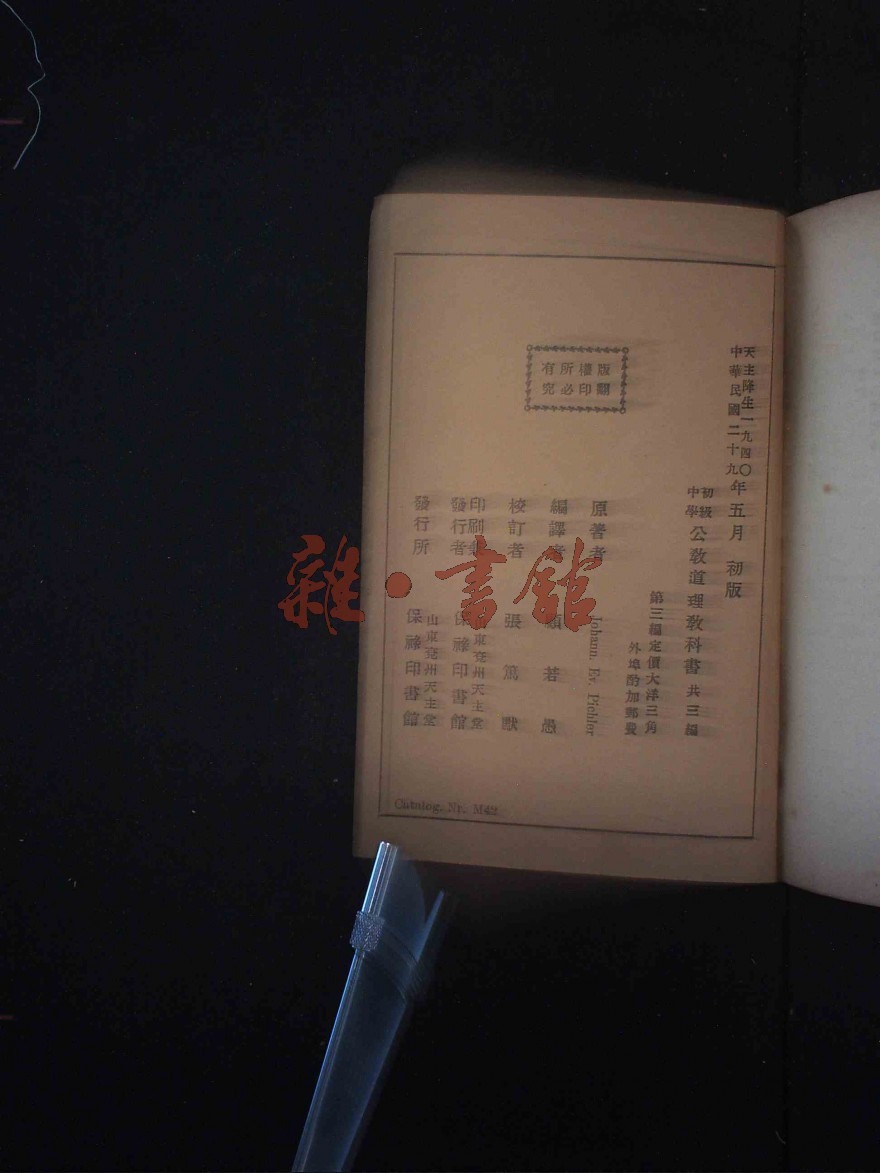 天主降生一九四〇年五月 初版
中華民國二十九
初級中學 公敎道理敎科書 共三編
第三編定價大洋三角
外埠酌加郵費
版權所有
翻印必究
原著者 Johann. Ev. Pichler
編譯者 顧若愚
校訂者 張篤
印刷兼發行者 山東兗州天主堂保祿印書館
發行所 山東兗州天主堂保祿印書館
Catalog. Nr. M42
雜·書館